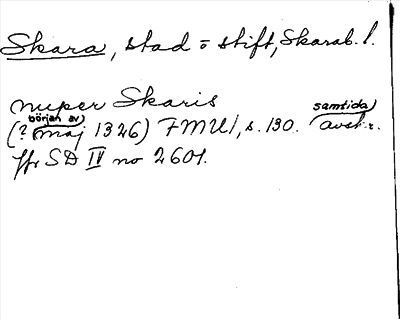 Skara, stad o stift, Skarab. l.
nuper Skaris
(? början av maj 1326) FMU I, s. 130. samtida avskr.
Jfr SD IV no 2601.